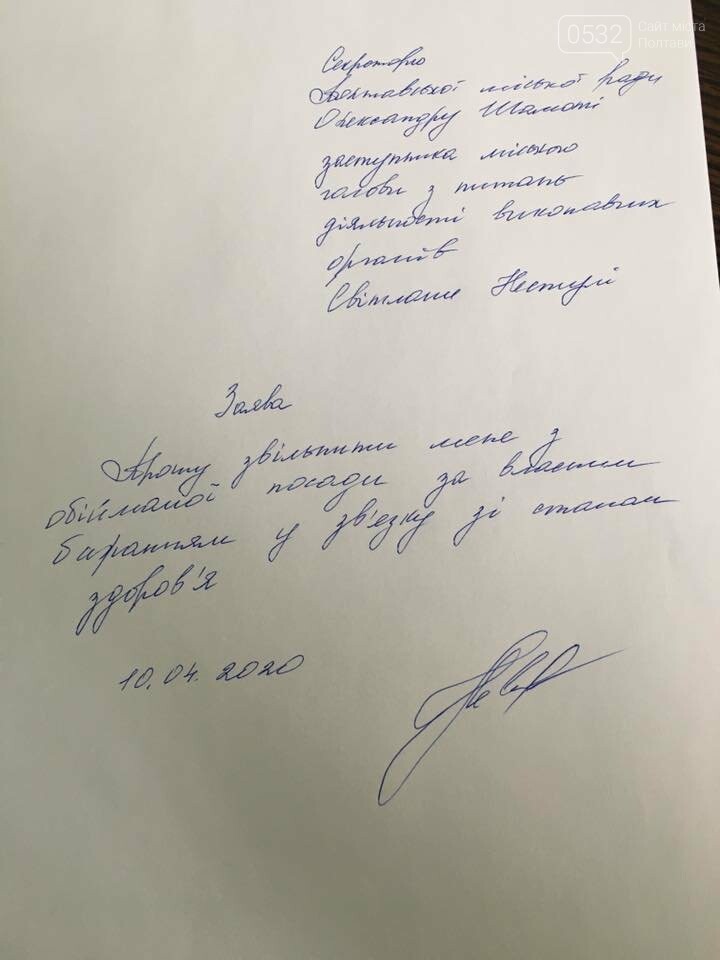 0532
Сайт міста
Полтави
Секретарю
Полтавської міської ради
Олександру Шамоті
заступника міського
голови з питань
діяльності виконавчих
органів
Світлани Нестулі
Заява
Прошу звільнити мене з
обійманої посади за власним
бажанням у зв'язку зі станом
здоров'я
10.04.2020